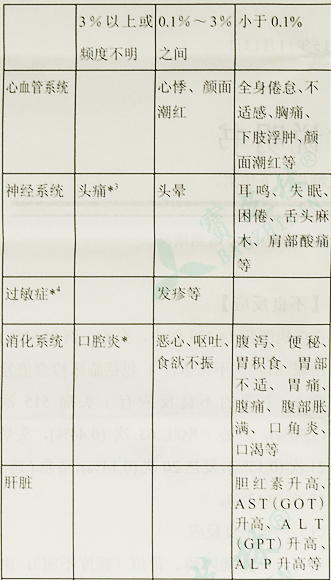 3%以上或 0.1%～3% 小于0.1%
频度不明 之间
心血管系统 心悸、颜面 全身倦怠、不
潮红 适感、胸痛、
下肢浮肿、颜
面潮红等
神经系统 头痛*3 头晕 耳鸣、失眠、
困倦、舌头麻
木、肩部酸痛
等
过敏症*4 发疹等
消化系统 口腔炎* 恶心、呕吐、 腹泻、便秘、
食欲不振 胃积食、胃部
不适、胃痛、
腹痛、腹部胀
满、口角炎、
口渴等
肝脏 胆红素升高、
AST(GOT)
升高、ALT
(GPT)升高、
ALP升高等